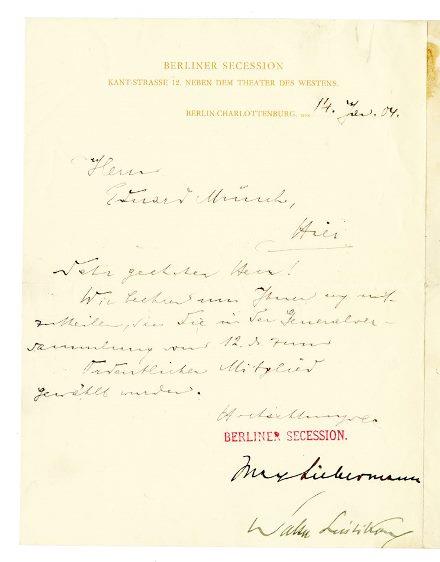 BERLINER SECESSION
KANT-STRASSE 12. NEBEN DEM THEATER DES WESTENS.
BERLIN-CHARLOTTENBURG, DEN 14. Jan. 04.
Herrn
Eduard Münch,
Hier
Sehr geehrter Herr!
Wir beehren uns Ihnen mit-
zutheilen, dass Sie in der Generalver-
sammlung vom 12. ds zum
Ordentlichen Mitglied
gewählt wurden.
Hochachtungsv.
BERLINER SECESSION.
Max Liebermann
Walter Leistikow